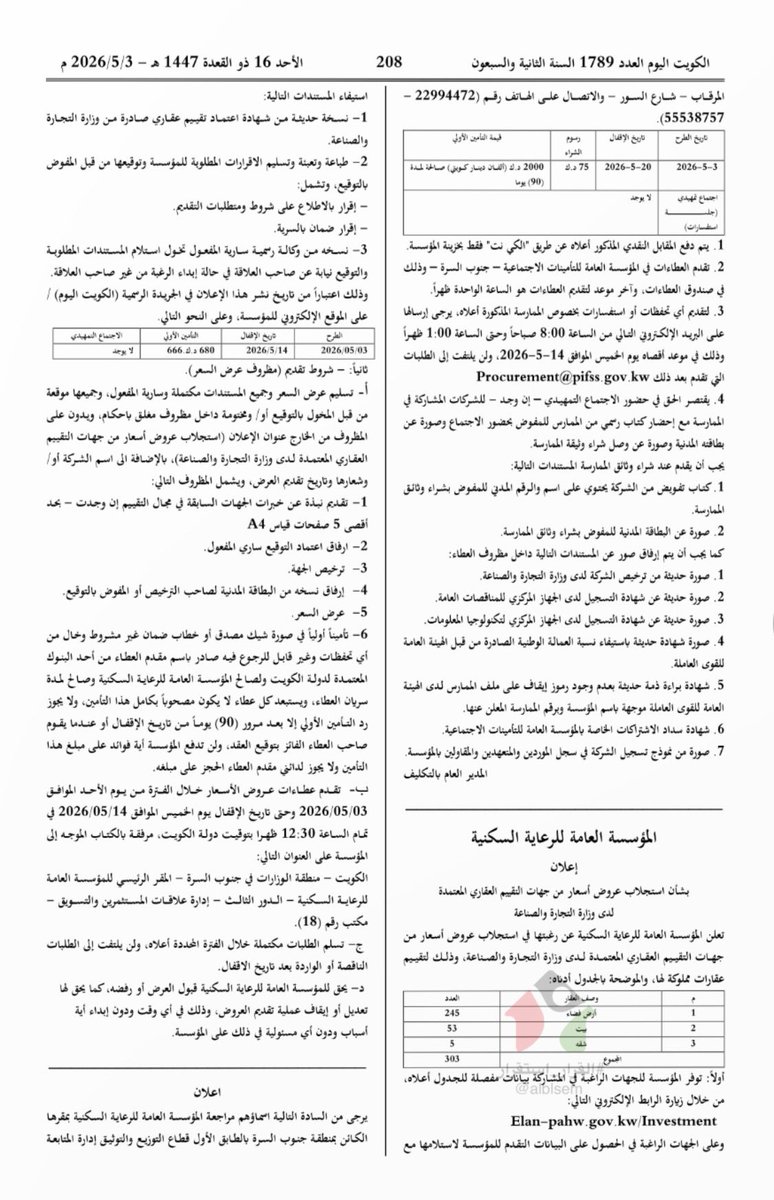 الكويت اليوم العدد 1789 السنة الثانية والسبعون
208
الأحد 16 ذو القعدة 1447 هـ – 2026/5/3 م
المرقاب – شارع السور – والاتصال على الهاتف رقم (22994472 –
55538757).
تاريخ الطرح
تاريخ الإقفال
رسوم الشراء
قيمة التأمين الأولي
3–5–2026
20–5–2026
75 د.ك
2000 د.ك (ألفان دينار كويتي) صالحة لمدة
(90) يوما
اجتماع تمهيدي
(جلسة
استفسارات)
لا يوجد
1. يتم دفع المقابل النقدي المذكور أعلاه عن طريق "الكي نت" فقط بخزينة المؤسسة.
2. تقدم العطاءات في المؤسسة العامة للتأمينات الاجتماعية – جنوب السرة – وذلك
في صندوق العطاءات، وآخر موعد لتقديم العطاءات هو الساعة الواحدة ظهراً.
3. لتقديم أي تحفظات أو استفسارات بخصوص الممارسة المذكورة أعلاه، يرجى إرسالها
على البريد الإلكتروني التالي من الساعة 8:00 صباحاً وحتى الساعة 1:00 ظهراً
وذلك في موعد أقصاه يوم الخميس الموافق 14–5–2026، ولن يلتفت إلى الطلبات
التي تقدم بعد ذلك Procurement@pifss.gov.kw
4. يقتصر الحق في حضور الاجتماع التمهيدي – إن وجد – للشركات المشاركة في
الممارسة مع إحضار كتاب رسمي من الممارس للمفوض بحضور الاجتماع وصورة عن
بطاقته المدنية وصورة عن وصل شراء وثيقة الممارسة.
يجب أن يقدم عند شراء وثائق الممارسة المستندات التالية:
1. كتاب تفويض من الشركة يحتوي على اسم والرقم المدني للمفوض بشراء وثائق
الممارسة.
2. صورة عن البطاقة المدنية للمفوض بشراء وثائق الممارسة.
كما يجب أن يتم إرفاق صور عن المستندات التالية داخل مظروف العطاء:
1. صورة حديثة من ترخيص الشركة لدى وزارة التجارة والصناعة.
2. صورة حديثة عن شهادة التسجيل لدى الجهاز المركزي للمناقصات العامة.
3. صورة حديثة عن شهادة التسجيل لدى الجهاز المركزي لتكنولوجيا المعلومات.
4. صورة شهادة حديثة باستيفاء نسبة العمالة الوطنية الصادرة من قبل الهيئة العامة
للقوى العاملة.
5. شهادة براءة ذمة حديثة بعدم وجود رموز إيقاف على ملف الممارس لدى الهيئة
العامة للقوى العاملة موجهة باسم المؤسسة وبرقم الممارسة المعلن عنها.
6. شهادة سداد الاشتراكات الخاصة بالمؤسسة العامة للتأمينات الاجتماعية.
7. صورة من نموذج تسجيل الشركة في سجل الموردين والمتعهدين والمقاولين بالمؤسسة.
المدير العام بالتكليف
المؤسسة العامة للرعاية السكنية
إعلان
بشأن استجلاب عروض أسعار من جهات التقييم العقاري المعتمدة
لدى وزارة التجارة والصناعة
تعلن المؤسسة العامة للرعاية السكنية عن رغبتها في استجلاب عروض أسعار من
جهات التقييم العقاري المعتمدة لدى وزارة التجارة والصناعة، وذلك لتقييم
عقارات مملوكة لها، والموضحة بالجدول أدناه:
م
وصف العقار
العدد
1
أرض فضاء
245
2
بيت
53
3
شقه
5
المجموع
303
أولاً: توفر المؤسسة للجهات الراغبة في المشاركة بيانات مفصلة للجدول أعلاه،
من خلال زيارة الرابط الإلكتروني التالي:
Elan-pahw.gov.kw/Investment
وعلى الجهات الراغبة في الحصول على البيانات التقدم للمؤسسة لاستلامها مع
#القرار_استقرار
@albisem
استيفاء المستندات التالية:
1– نسخة حديثة من شهادة اعتماد تقييم عقاري صادرة من وزارة التجارة
والصناعة.
2– طباعة وتعبئة وتسليم الاقرارات المطلوبة للمؤسسة وتوقيعها من قبل المفوض
بالتوقيع، وتشمل:
– إقرار بالاطلاع على شروط ومتطلبات التقديم.
– إقرار ضمان بالسرية.
3– نسخه من وكالة رسمية سارية المفعول تخول استلام المستندات المطلوبة
والتوقيع نيابة عن صاحب العلاقة في حالة إبداء الرغبة من غير صاحب العلاقة.
وذلك اعتباراً من تاريخ نشر هذا الإعلان في الجريدة الرسمية (الكويت اليوم) /
على الموقع الإلكتروني للمؤسسة، وعلى النحو التالي.
الطرح
تاريخ الإقفال
التأمين الأولي
الاجتماع التمهيدي
2026/05/03
2026/5/14
680 د.ك.666
لا يوجد
ثانياً: – شروط تقديم (مظروف عرض السعر).
أ– تسليم عرض السعر وجميع المستندات مكتملة وسارية المفعول، وجميعها موقعة
من قبل المخول بالتوقيع أو/ ومختومة داخل مظروف مغلق باحكام، ويدون على
المظروف من الخارج عنوان الإعلان (استجلاب عروض أسعار من جهات التقييم
العقاري المعتمدة لدى وزارة التجارة والصناعة)، بالإضافة الى اسم الشركة أو/
وشعارها وتاريخ تقديم العرض، ويشمل المظروف التالي:
1– تقديم نبذة عن خبرات الجهات السابقة في مجال التقييم إن وجدت – بحد
أقصى 5 صفحات قياس A4
2– ارفاق اعتماد التوقيع ساري المفعول.
3– ترخيص الجهة.
4– إرفاق نسخه من البطاقة المدنية لصاحب الترخيص أو المفوض بالتوقيع.
5– عرض السعر.
6– تأميناً أولياً في صورة شيك مصدق أو خطاب ضمان غير مشروط وخال من
أي تحفظات وغير قابل للرجوع فيه صادر باسم مقدم العطاء من أحد البنوك
المعتمدة لدولة الكويت ولصالح المؤسسة العامة للرعاية السكنية وصالح لمدة
سريان العطاء، ويستبعد كل عطاء لا يكون مصحوباً بكامل هذا التأمين، ولا يجوز
رد التأمين الأولي إلا بعد مرور (90) يوماً من تاريخ الإقفال أو عندما يقوم
صاحب العطاء الفائز بتوقيع العقد، ولن تدفع المؤسسة أية فوائد على مبلغ هذا
التأمين ولا يجوز لدائني مقدم العطاء الحجز على مبلغه.
ب– تقدم عطاءات عروض الأسعار خلال الفترة من يوم الأحد الموافق
2026/05/03 وحتى تاريخ الإقفال يوم الخميس الموافق 2026/05/14 في
تمام الساعة 12:30 ظهرا بتوقيت دولة الكويت، مرفقة بالكتاب الموجه إلى
المؤسسة على العنوان التالي:
الكويت – منطقة الوزارات في جنوب السرة – المقر الرئيسي للمؤسسة العامة
للرعاية السكنية – الدور الثالث – إدارة علاقات المستثمرين والتسويق –
مكتب رقم (18).
ج– تسلم الطلبات مكتملة خلال الفترة المحددة أعلاه، ولن يلتفت إلى الطلبات
الناقصة أو الواردة بعد تاريخ الاقفال.
د– يحق للمؤسسة العامة للرعاية السكنية قبول العرض أو رفضه، كما يحق لها
تعديل أو إيقاف عملية تقديم العروض، وذلك في أي وقت ودون إبداء أية
أسباب ودون أي مسئولية في ذلك على المؤسسة.
اعلان
يرجى من السادة التالية اسماؤهم مراجعة المؤسسة العامة للرعاية السكنية بمقرها
الكائن بمنطقة جنوب السرة بالطابق الأول قطاع التوزيع والتوثيق إدارة المتابعة